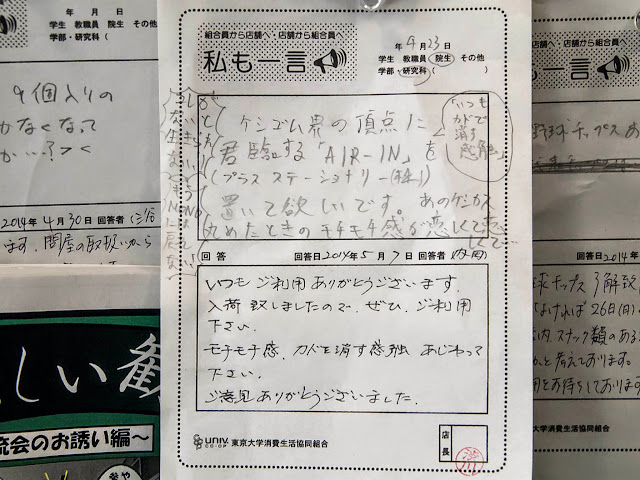 年 月 日
学生 教職員 院生 その他
学部・研究科(
9個入りの
かなくなって
か…?><
2014年4月30日 回答者
ます。問屋の取扱いから
しい
流会のお誘い編～
組合員から店舗へ・店舗から組合員へ
私も一言
年4月23日
学生 教職員 院生 その他
学部・研究科( )
ケシゴム界の頂点に
君臨する「AIR-IN」を
(プラス ステーショナリー(株))
置いて欲しいです。あのケシカス
丸めたときのモチモチ感が恋しくて恋
しくて…
「いつも
カドで
消す
感触」
回答 回答日2014年5月7日 回答者 内岡
いつもご利用ありがとうございます。
入荷致しましたので、ぜひ、ご利用
下さい。
モチモチ感、カドを消す感触 あじわって
下さい。
ご意見ありがとうございました。
univ.
CO-OP
東京大学消費生活協同組合
店長
・店舗から組合員へ
野球チップスあ
回答日2014年
球チップス了解致
なければ26日(日)
内、スナック類のある
かと考えております。
用をお待ちしております
東京大学消費生活協同組合